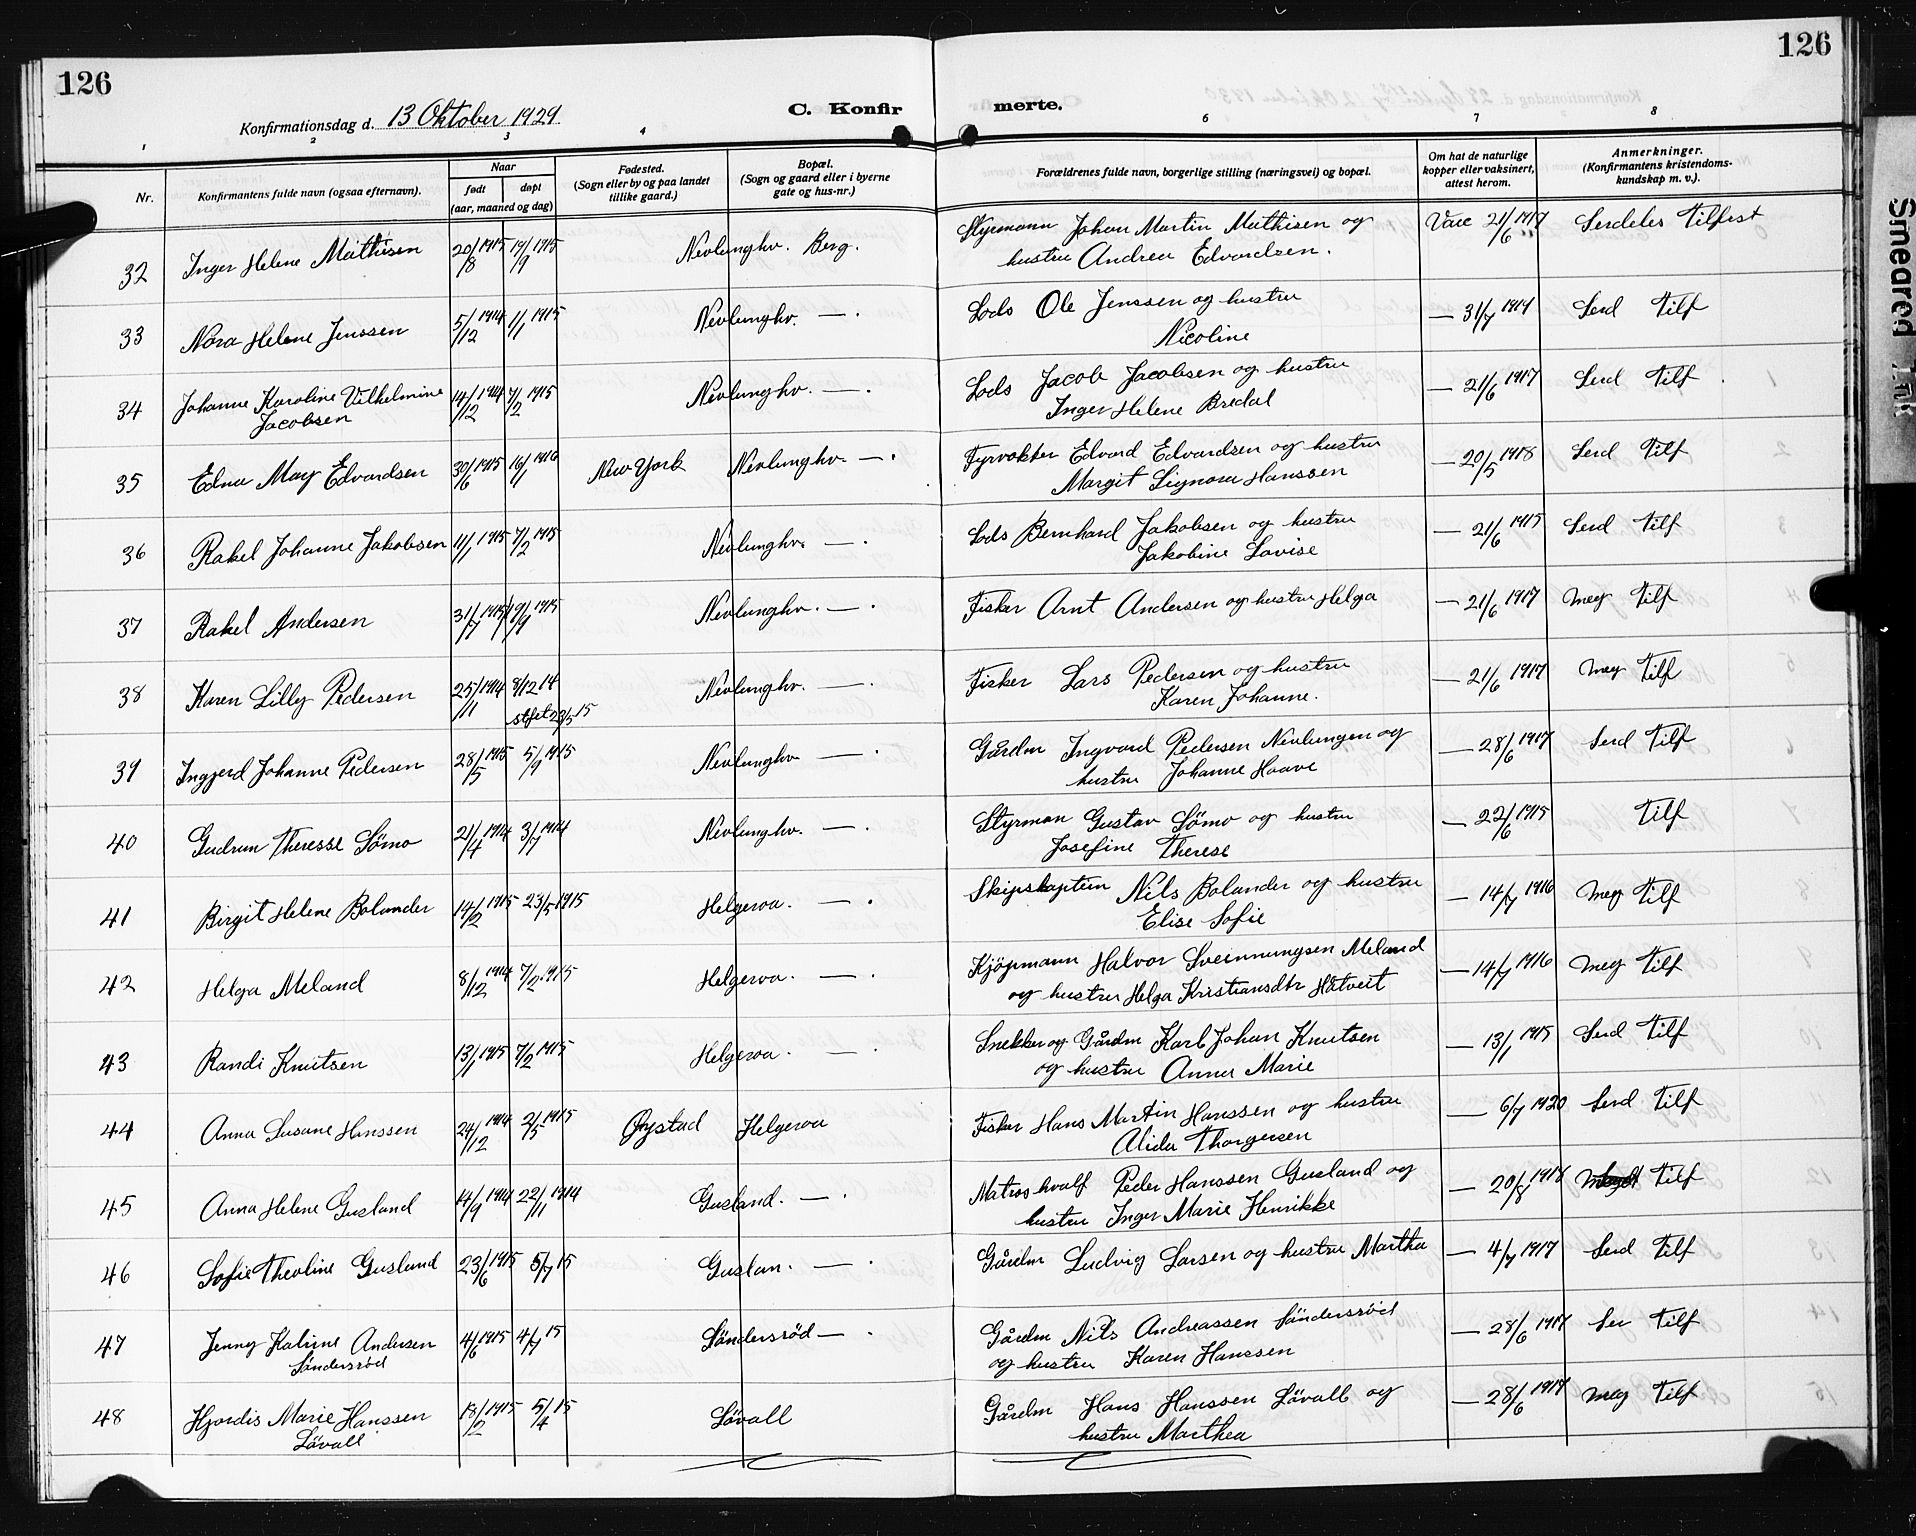 126
126
Konfirmationsdag d. 13 Oktober 1929
C. Konfirmerte.
1 2 3 4 6 7 8
Nr.
Konfirmantens fulde navn (ogsaa efternavn).
Naar
født døpt
(aar, maaned og dag)
Fødested.
(Sogn eller by og paa landet
tillike gaard.)
Bopæl.
(Sogn og gaard eller i byerne
gate og hus-nr.)
Forældrenes fulde navn, borgerlige stilling (næringsvei) og bopæl.
Om hat de naturlige
kopper eller vaksinert,
attest herom.
Anmerkninger.
(Konfirmantens kristendoms-
kundskap m. v.).
32 Inger Helene Mathisen 20/8 1915 19/9 1915 Nevlunghv. Berg. Styrmann Johan Martin Mathisen og Vacc 21/6 1917 Serdeles Tilfrst
hustru Andrea Edvardsen.
33 Nora Helene Jenssen 5/12 1914 1/1 1915 Nevlunghv. — . Lods Ole Jenssen og hustru — 31/7 1914 Serd Tilf
Nicoline
34 Johanne Karoline Vilhelmine 14/12 1914 7/2 1915 Nevlunghv. — . Lods Jacob Jacobsen og hustru — 21/6 1917 Serd Tilf
Jacobsen Inger Helene Bredal
35 Edna May Edvardsen 30/6 1915 16/1 1916 New York Nevlunghv. — . Fyrvokter Edvard Edvardsen og hustru — 20/5 1918 Serd Tilf
Margit Signora Hanssen
36 Rakel Johanne Jakobsen 11/1 1915 7/2 1915 Nevlunghv. — . Lods Bernhard Jakobsen og hustru — 21/6 1915 Serd Tilf
Jakobine Lovise
37 Rakel Andersen 31/7 1915 19/9 1915 Nevlunghv. — . Fisker Arnt Andersen og hustru Helga — 21/6 1917 Meg Tilf
38 Karen Lilly Pedersen 25/11 1914 8/12 14 Nevlunghv. — . Fisker Lars Pedersen og hustru — 21/6 1917 Meg Tilf
stfst 23/5 15 Karen Johanne.
39 Ingjerd Johanne Pedersen 28/5 1915 5/9 1915 Nevlunghv — . Gårdm Ingvard Pedersen Nevlungen og — 28/6 1917 Serd Tilf
hustru Johanne Haave
40 Gudrun Theresse Sømo 21/4 1914 3/7 1914 Nevlunghv. — . Styrman Gustav Sømo og hustru — 22/6 1915 Tilf
Josefine Therese
41 Birgit Helene Bolander 14/2 1915 23/5 1915 Helgeroa. — . Skipskaptein Nils Bolander og hustru — 14/7 1916 Meg Tilf
Elise Sofie
42 Helga Meland 8/12 1914 7/2 1915 Helgeroa. — . Kjöpmann Halvor Sveinnungsen Meland — 14/7 1916 Meg Tilf
og hustru Helga Kristiansdtr Håtveit
43 Randi Knutsen 13/1 1915 7/2 1915 Helgeroa. — . Snekker og Gårdm Karl Johan Knutsen — 13/1 1915 Serd Tilf
og hustru Anna Marie
44 Anna Susane Hanssen 24/12 1914 2/5 1915 Helgeroa Fisker Hans Martin Hanssen og hustru — 6/7 1920 Serd Tilf
Alida Thorgersen
45 Anna Helene Gusland 14/9 1914 22/11 1914 Gusland. — . Matros hvalf Peder Hanssen Gusland og — 20/8 1917 Tilf
hustru Inger Marie Henrikke
46 Sofie Theoline Gusland 23/6 1915 5/7 15 Guslan. — . Gårdm Ludvig Larsen og hustru Martha — 4/7 1917 Serd Tilf
47 Jenny Katrine Andersen 4/6 1915 4/7 15 Söndersröd — . Gårdm Nils Andreassen Söndersröd — 28/6 1917 Ser Tilf
Söndersröd og hustru Karen Hanssen
48 Hjordis Marie Hanssen 18/2 1915 5/4 15 Lövall Gårdm Hans Hanssen Lövall og — 28/6 1917 Meg Tilf
Lövall hustru Marthea
Smeared Ink